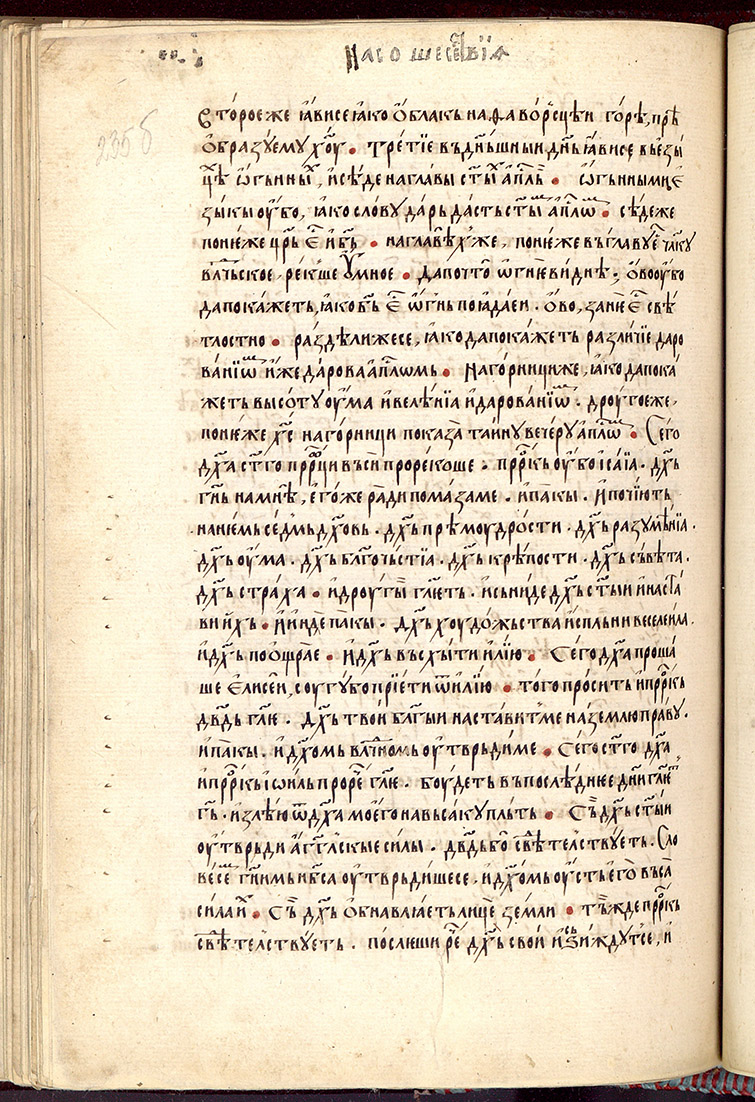 На сошествїѧ
235б
Второе же ꙗвисе ꙗко ѻблакь на ѳаворсцѣи горѣ, прѣ
ѡбразуему хⷭ҇у. Третїе въ дн҃ьшныи дн҃ь ꙗвисе въ езы
цѣ ѡгньнныⷯ, и сѣде на главы ст҃ыⷯ ап҇лъ. ѡгньнным же
зыкы оубо, ꙗко слову дарь дасть ст҃ыⷨ ап҇лѡⷨ. сѣде же
понеже цр҃ь еⷭ҇ и бг҃ь. на главѣⷯ же, понеже въ главу еⷭ҇ чл҃ку
влⷣчьское, рекше оумное. да почто ѡгнѥ видиѣ; ѻво оубо
да покажеть, ꙗко бг҃ь еⷭ҇ ѡгнь поꙗдаеи. ѻво, занѥ еⷭ҇ свѣ
тлостно. раздѣли же се, ꙗко да покажеть различїе даро
ванїиѡⷨ иже дарова ап҇лѡмь. На горници же, ꙗко да пока
жеть высоту оума и велѣнїа и дарованїиѡⷨ. другое же,
понеже хⷭ҇ на горници показа таину вечеру ап҇лѡⷨ. Сего
дх҃а ст҃го прⷪ҇рци въси прорекоше. прⷪ҇ркь оубо ісаїа. дх҃ь
гн҃ь на мнѣ, егоже ради помаза ме. и пакы. И почїють
на ніемь седмь дх҃овь. дх҃ь прѣмоудрости. дх҃ь разумѣнїа.
дх҃ь оума. дх҃ь бл҃гочьстїа. дх҃ь крѣпости. дх҃ь съвѣта.
дх҃ь страха. и другыи гл҃еть. и сьниде дх҃ь ст҃ыи и наста
ви ихь. И индѣ пакы. дх҃ь хоудожьства испльни веселеила.
и дх҃ь поѡщраѥ. И дх҃ь въсхыти илїю. Сего дх҃а проша
ше Елисеи, соугубо прїети ѿ илїю. того просить и прⷪ҇ркь
дв҃дь гл҃ѥ. дх҃ь твои бл҃гыи наставить ме на землю праву.
и пакы. и дх҃омь влⷣчномь оутврьди ме. Сего ст҃го дх҃а
и прⷪ҇ркь іѡиль прореⷱ гл҃ѥ. боудеть въ послѣднеѥ дн҃и гл҃еⷮ
гь҃. излѣю ѿ дх҃а моего на вьсаку пльть. Съ дх҃ь ст҃ыи
оутврьди агг҃лскыѥ силы. дв҃дь бѡ свⷣѣтелствуеть. Сло
весеⷨ гн҃имь нб҃са оутврьдише се. и дх҃омь оусть его въса
сила иⷯ. Съ дх҃ь ѻбнавлꙗеть лице земли. тъжде прⷪ҇ркь
свⷣѣтелствуеть. послѥши реⷱ дх҃ь свои и съзиждут се, и